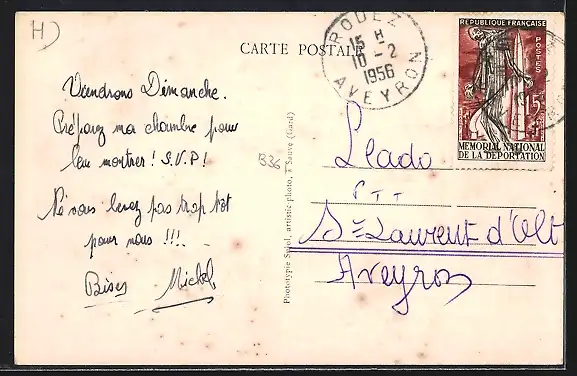 H)
CARTE POSTALE
RODEZ
15 H
10-2
1956
AVEYRON
REPUBLIQUE FRANÇAISE
POSTES
15F
MEMORIAL NATIONAL
DE LA DEPORTATION
Viendrons Dimanche.
Préparez ma chambre pour
leur montrer! S.V.P!
Ne vous levez pas trop tôt
pour nous !!!.
Bises Michel
B36
Phototypie Sriol, artistic-photo, à Sauve (Gard)
Llado
PTT
St Laurent d'Olt
Aveyron